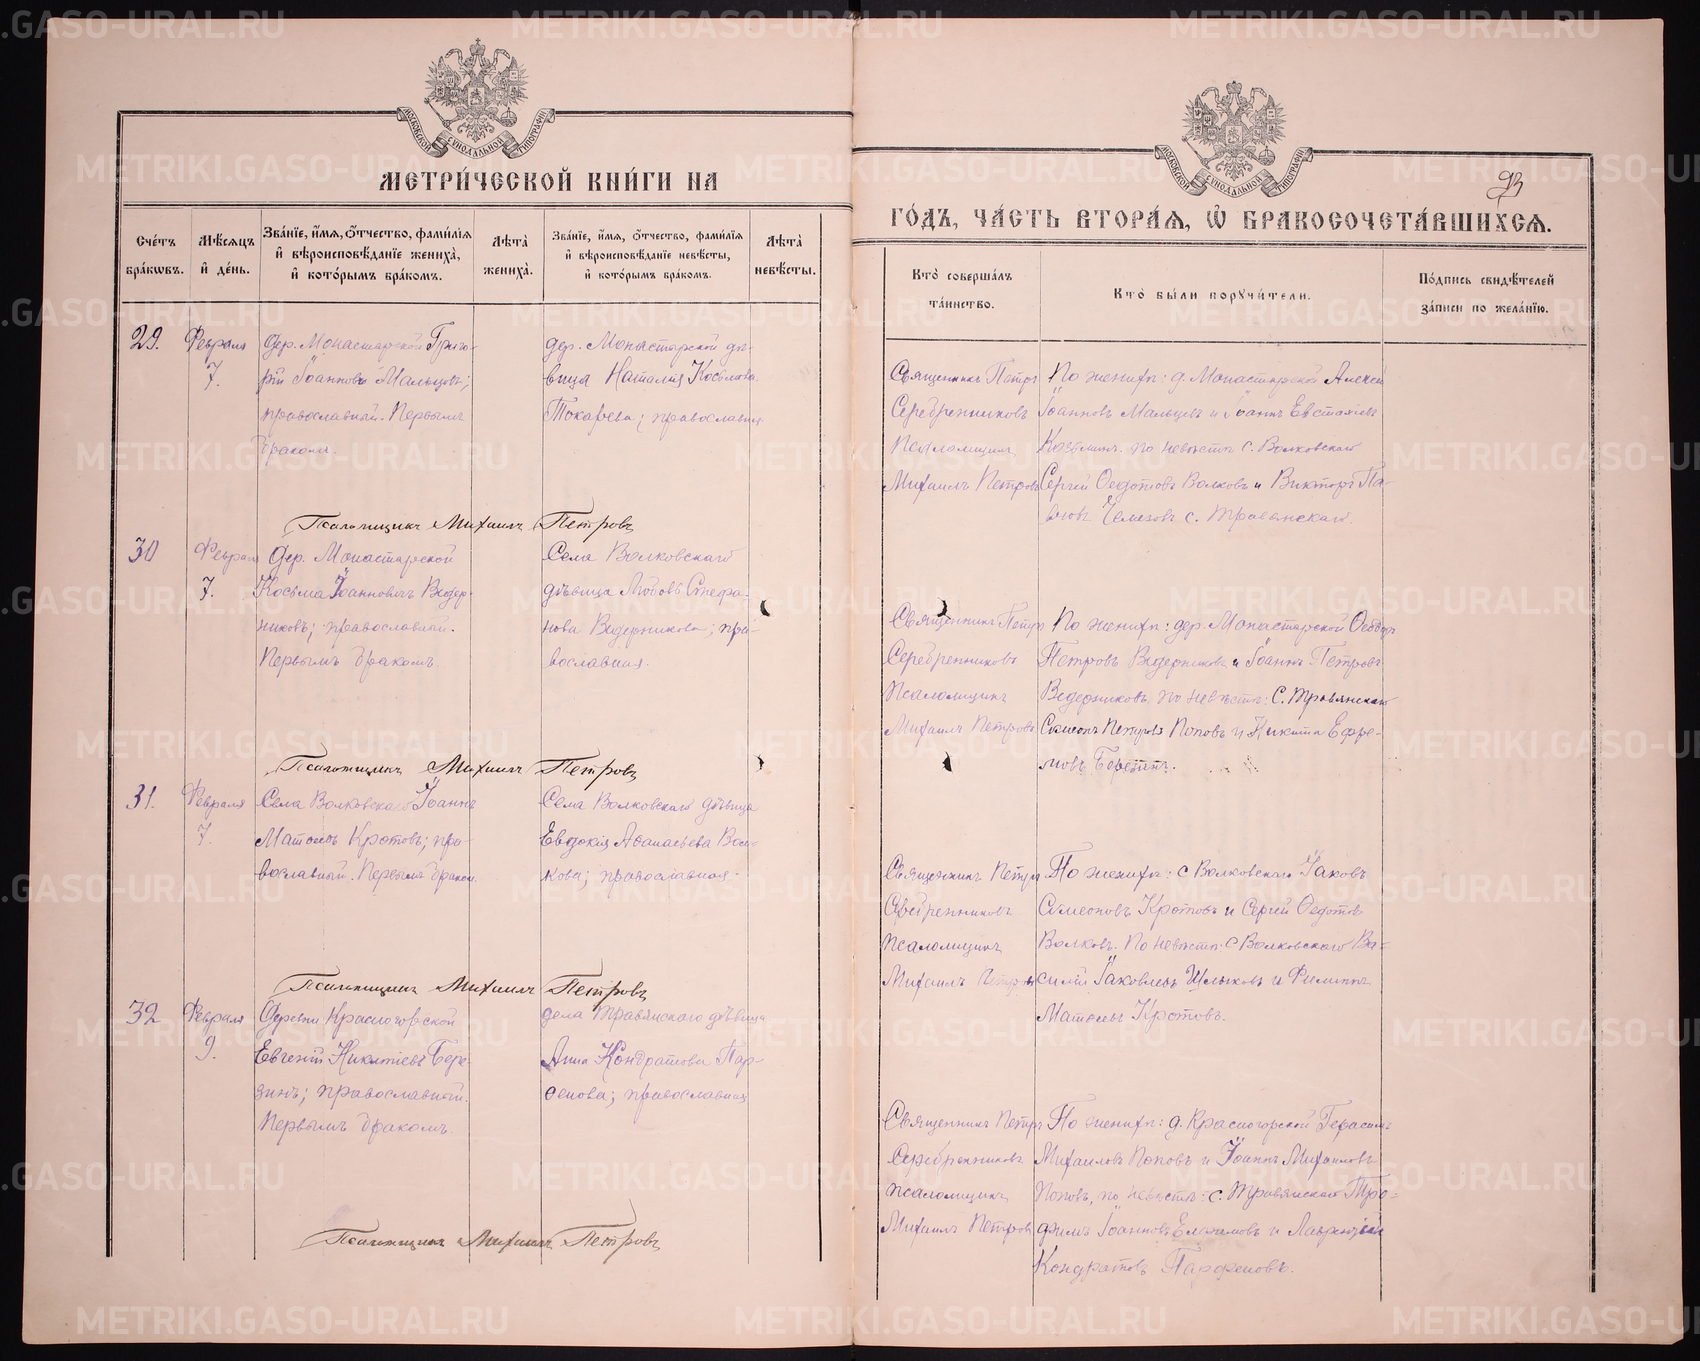 МЕТРИ́ЧЕСКОЙ КНИ́ГИ НА
ГО́ДЪ, ЧА́СТЬ ВТОРА́Я, Ѡ БРАКОСОЧЕТА́ВШИХСЯ.
93
МОСКОВСКОЙ СѴНОДАЛЬНОЙ ТИПОГРАФІИ
МОСКОВСКОЙ СѴНОДАЛЬНОЙ ТИПОГРАФІИ
Сче́тъ бра́кѡвъ.
Мѣ́сяцъ и҆ де́нь.
Зва́нїе, и҆́мя, ѻ҆́тчество, фами́лїя и҆ вѣроисповѣ́данїе жениха̀, и҆ кото́рымъ бра́комъ.
Лѣ́та̀ жениха̀.
Зва́нїе, и҆́мя, ѻ҆́тчество, фами́лїя и҆ вѣроисповѣ́данїе невѣ́сты, и҆ кото́рымъ бра́комъ.
Лѣ́та̀ невѣ́сты.
Кто̀ соверша́лъ та́инство.
Кто̀ бы́ли порꙋчи́тели.
По́дпись свидѣ́телей за́писи по жела́нїю.
29.
Февраля
7.
Дер. Монастырской Григо-
рій Іоанновъ Мальцевъ;
православный. Первымъ
бракомъ.
дер. Монастырской дѣ-
вица Наталія Косьмова
Токарева; православная
Священникъ Петръ
Серебренниковъ
Псаломщикъ
Михаилъ Петровъ
По женихѣ: д. Монастырской Алексѣй
Іоанновъ Мальцевъ и Іоаннъ Евстаѳіевъ
по невѣстѣ с. Волковскаго
Сергѣй Ѳедотовъ Волковъ и Викторъ Па-
с. Травянскаго.
Псаломщикъ Михаилъ Петровъ
30
Февраля
7.
Дер. Монастырской
Косьма Іоанновичъ Ведер-
никовъ; православный.
Первымъ бракомъ.
Села Волковскаго
дѣвица Любовь Стефа-
нова Ведерникова; пра-
вославная.
Священникъ Петръ
Серебренниковъ
Псаломщикъ
Михаилъ Петровъ
По женихѣ: дер. Монастырской Ѳеодоръ
Петровъ Ведерниковъ и Іоаннъ Петровъ
Ведерниковъ, по невѣстѣ: С. Травянскаго
Симеонъ Петровъ Поповъ и Никита Ефре-
мовъ Березинъ.
Псаломщикъ Михаилъ Петровъ
31.
Февраля
7.
Села Волковскаго Іоаннъ
Матѳіевъ Кротовъ; пра-
вославный. Первымъ бракомъ
Села Волковскаго дѣвица
Евдокія Аѳанасьева Вол-
кова; православная.
Священникъ Петръ
Серебренниковъ
псаломщикъ
Михаилъ Петровъ
По женихѣ: с Волковскаго Іаковъ
Симеоновъ Кротовъ и Сергѣй Ѳедотовъ
Волковъ. По невѣстѣ: с Волковскаго Ва-
силій Іаковлевъ Шлыковъ и Филиппъ
Матѳіевъ Кротовъ.
Псаломщикъ Михаилъ Петровъ
32
Февраля
9.
Деревни Красногорской
Евгеній Никитіевъ Бере-
зинъ; православный.
Первымъ бракомъ.
Села Травянскаго дѣвица
Анна Кондратова Пар-
ѳенова; православная
Священникъ Петръ
Серебренниковъ
псаломщикъ
Михаилъ Петровъ
По женихѣ: д. Красногорской Герасимъ
Михаиловъ Поповъ и Іоаннъ Михаиловъ
Поповъ, по невѣстѣ: с. Травянскаго Тро-
фимъ Іоанновъ и Лаврентій
Кондратовъ Парфеновъ.
Псаломщикъ Михаилъ Петровъ
METRIKI.GASO-URAL.RU